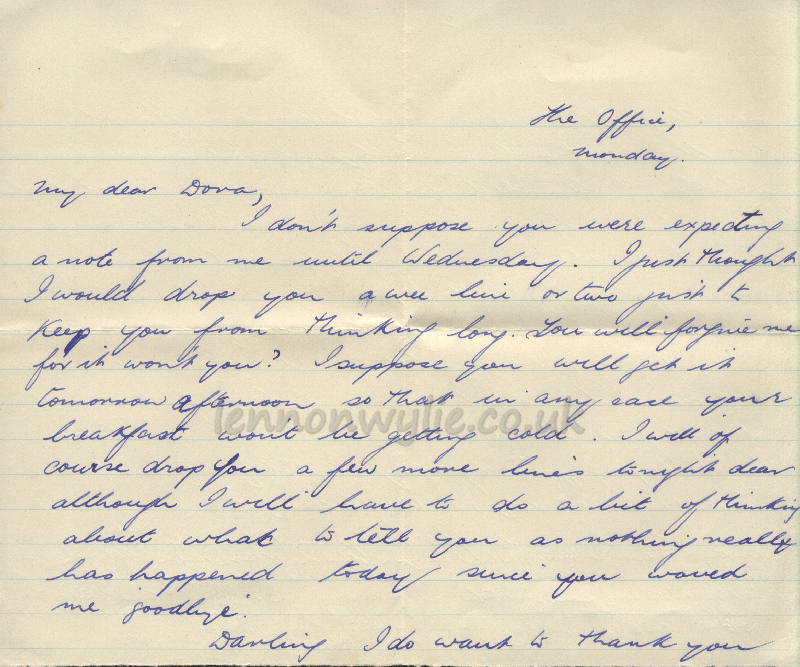 The Office,
Monday.
My dear Dora,
I don't suppose you were expecting
a note from me until Wednesday. I just thought
I would drop you a wee line or two just to
keep you from thinking long. You will forgive me
for it won't you? I suppose you will get it
tomorrow afternoon so that in any case your
lennonwylie.co.uk
breakfast won't be getting cold. I will of
course drop you a few more lines tonight dear
although I will have to do a bit of thinking
about what to tell you as nothing really
has happened today since you waved
me 'goodbye'.
Darling I do want to thank you